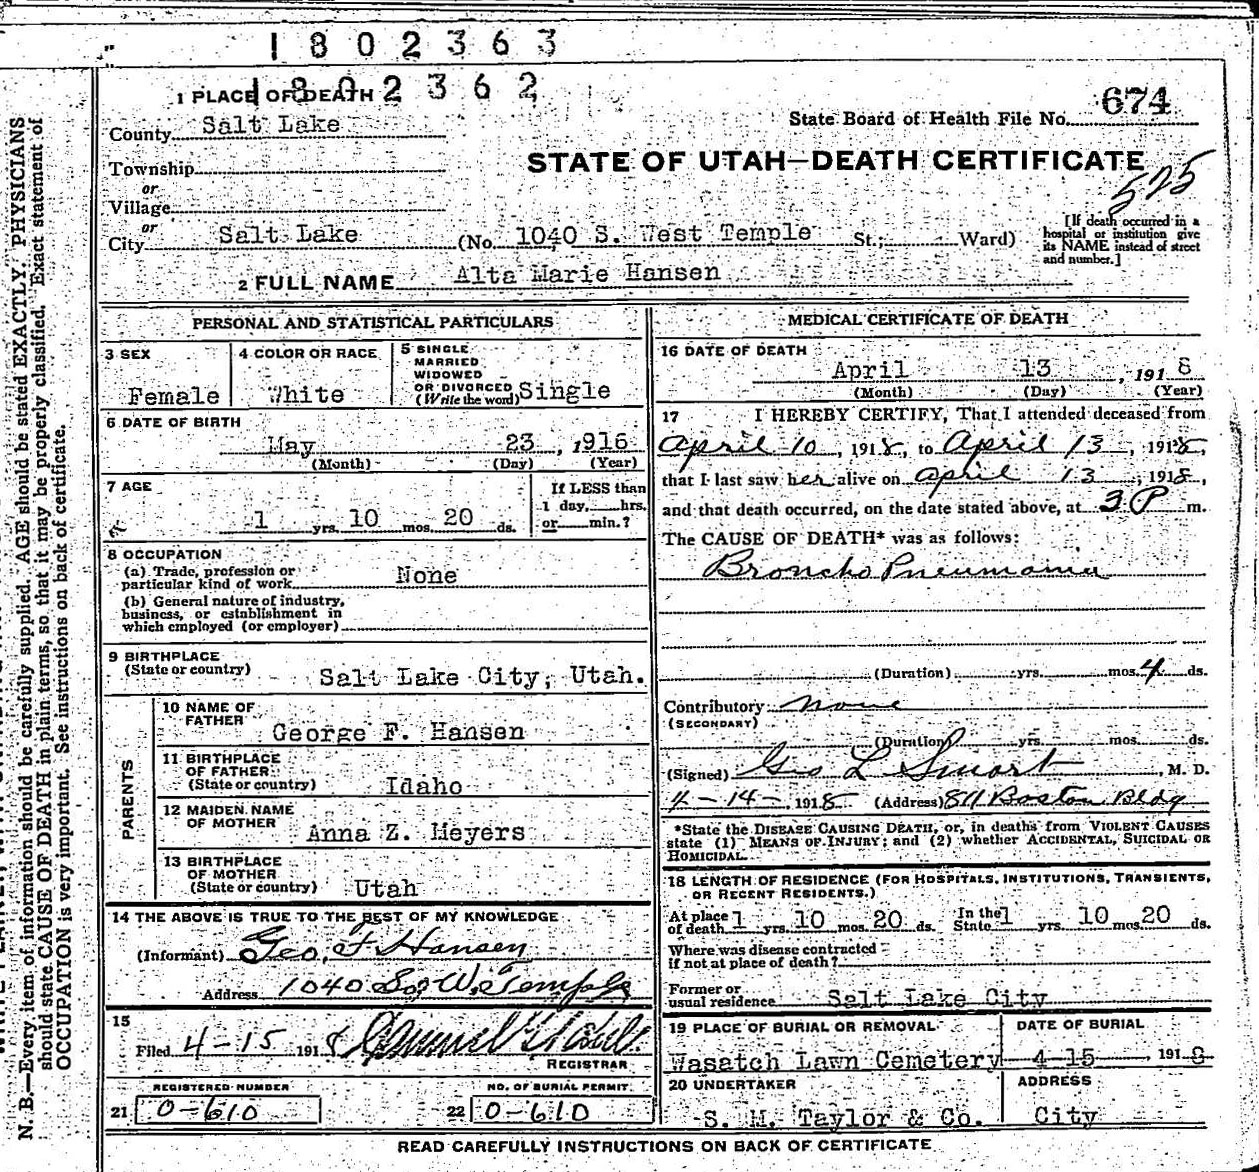 1802363
1802362
1 PLACE OF DEATH
State Board of Health File No. 674
County Salt Lake
STATE OF UTAH—DEATH CERTIFICATE
575
Township
or
Village
or
City Salt Lake (No. 1040 S. West Temple St.; Ward)
[If death occurred in a
hospital or institution give
its NAME instead of street
and number.]
2 FULL NAME Alta Marie Hansen
PERSONAL AND STATISTICAL PARTICULARS
3 SEX
Female
4 COLOR OR RACE
White
5 SINGLE
MARRIED
WIDOWED
OR DIVORCED
(Write the word) Single
6 DATE OF BIRTH
May 23, 1916
(Month) (Day) (Year)
7 AGE
1 yrs. 10 mos. 20 ds.
If LESS than
1 day, hrs.
or min.?
8 OCCUPATION
(a) Trade, profession or
particular kind of work None
(b) General nature of industry,
business, or establishment in
which employed (or employer)
9 BIRTHPLACE
(State or country) Salt Lake City, Utah.
PARENTS
10 NAME OF
FATHER George F. Hansen
11 BIRTHPLACE
OF FATHER
(State or country) Idaho
12 MAIDEN NAME
OF MOTHER Anna Z. Meyers
13 BIRTHPLACE
OF MOTHER
(State or country) Utah
14 THE ABOVE IS TRUE TO THE BEST OF MY KNOWLEDGE
(Informant) Geo. F Hansen
Address 1040 So. W. Temple
15
Filed 4-15 1918
REGISTRAR
REGISTERED NUMBER
21 0-610
NO. OF BURIAL PERMIT
22 0-610
MEDICAL CERTIFICATE OF DEATH
16 DATE OF DEATH
April 13, 1918
(Month) (Day) (Year)
17 I HEREBY CERTIFY, That I attended deceased from
April 10, 1918, to April 13, 1918,
that I last saw her alive on April 13, 1918,
and that death occurred, on the date stated above, at 3 P m.
The CAUSE OF DEATH* was as follows:
Broncho Pneumonia
(Duration) yrs. mos. 4 ds.
Contributory none
(SECONDARY)
(Duration) yrs. mos. ds.
(Signed) Geo L Smart, M. D.
4-14-, 1918 (Address) 811 Boston Bldg
*State the DISEASE CAUSING DEATH, or, in deaths from VIOLENT CAUSES
state (1) MEANS OF INJURY; and (2) whether ACCIDENTAL, SUICIDAL OR
HOMICIDAL.
18 LENGTH OF RESIDENCE (FOR HOSPITALS, INSTITUTIONS, TRANSIENTS,
OR RECENT RESIDENTS.)
At place
of death 1 yrs. 10 mos. 20 ds.
In the
State 1 yrs. 10 mos. 20 ds.
Where was disease contracted
if not at place of death?
Former or
usual residence Salt Lake City
19 PLACE OF BURIAL OR REMOVAL
Wasatch Lawn Cemetery
DATE OF BURIAL
4-15, 1918
20 UNDERTAKER
S. M. Taylor & Co.
ADDRESS
City
READ CAREFULLY INSTRUCTIONS ON BACK OF CERTIFICATE
N. B.—Every item of information should be carefully supplied. AGE should be stated EXACTLY. PHYSICIANS
should state CAUSE OF DEATH in plain terms, so that it may be properly classified. Exact statement of
OCCUPATION is very important. See instructions on back of certificate.